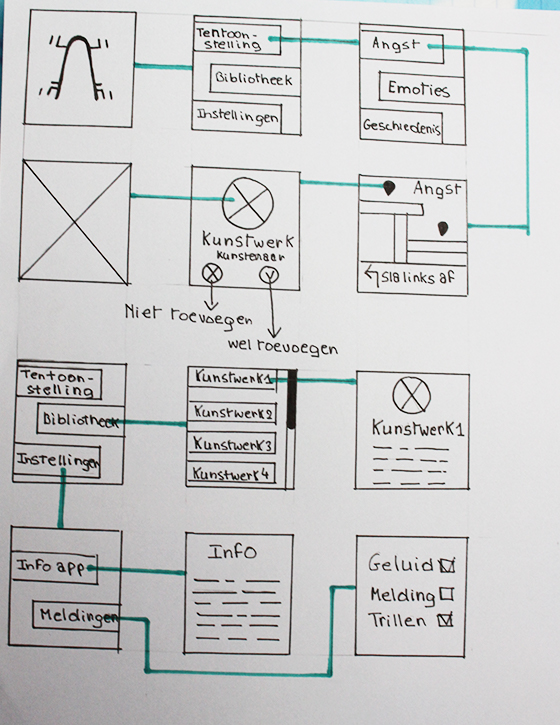 Tentoon-
stelling
Bibliotheek
Instellingen
Angst
Emoties
Geschiedenis
Kunstwerk
Kunstenaar
X
V
Niet toevoegen
wel toevoegen
Angst
Sla links af
Tentoon-
stelling
Bibliotheek
Instellingen
Kunstwerk1
Kunstwerk2
Kunstwerk3
Kunstwerk4
Kunstwerk1
Info app
Meldingen
Info
Geluid
Melding
Trillen